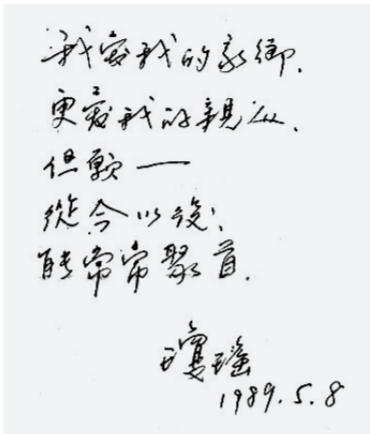 我愛我的家鄉.
更愛我的親人.
但願——
從今以後,
能常常聚首.
瓊瑤
1989.5.8